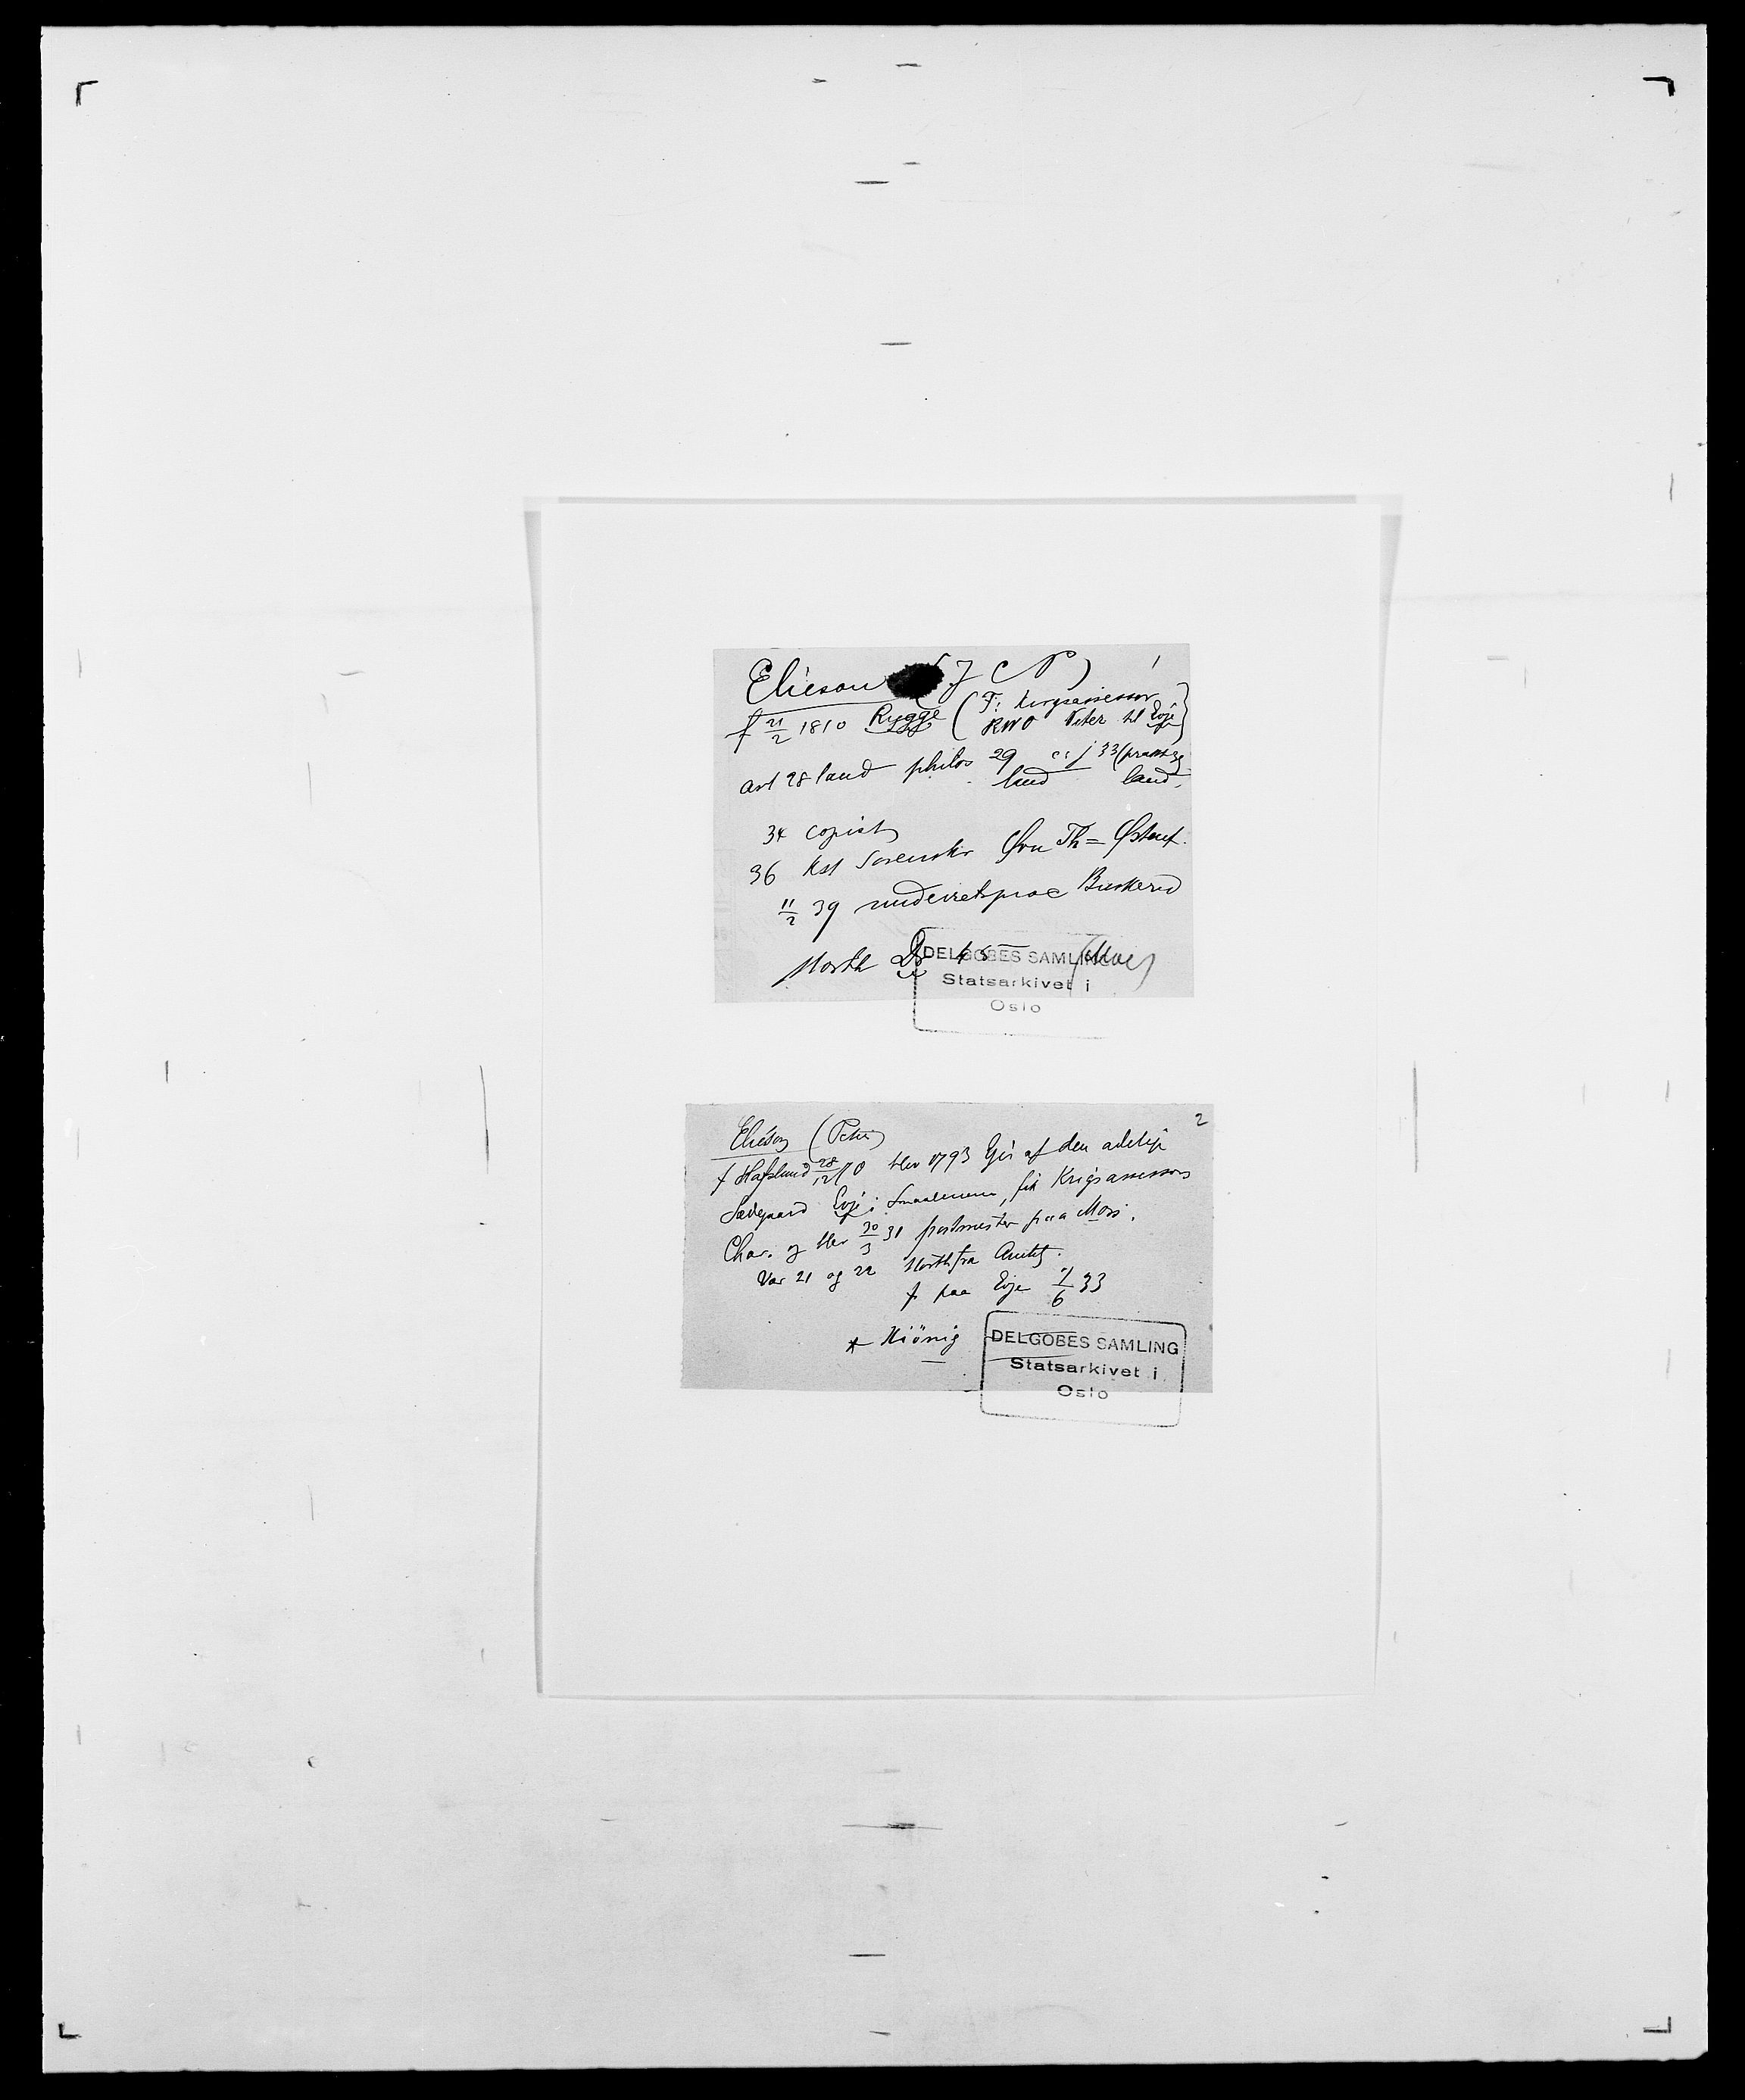 Elieson J N) 1
f 21/2 1810 Rygge (F: krigsassessor
RWO Ridder til Evje)
art 28 laud philos 29 laud cj 33 (prakt 33 laud
34 copist
36 Kst Sorenskr Øvre Th= Østerd.
11/2 39 underretsproc Buskerud
Storth 45 (Moss)
DELGOBES SAMLING
Statsarkivet i
Oslo
Elieson (Peter) 2
f Hafslund 28/12 70 blev 1793 Eier af den adelige
Sædegaard Evje i Smaalenene, fik Krigsassessors
Char. og blev 30/3 31 postmester paa Moss.
Var 21 og 22 Storth fra Amtet.
† paa Evje 7/6 33
* Kiönig
DELGOBES SAMLING
Statsarkivet i
Oslo